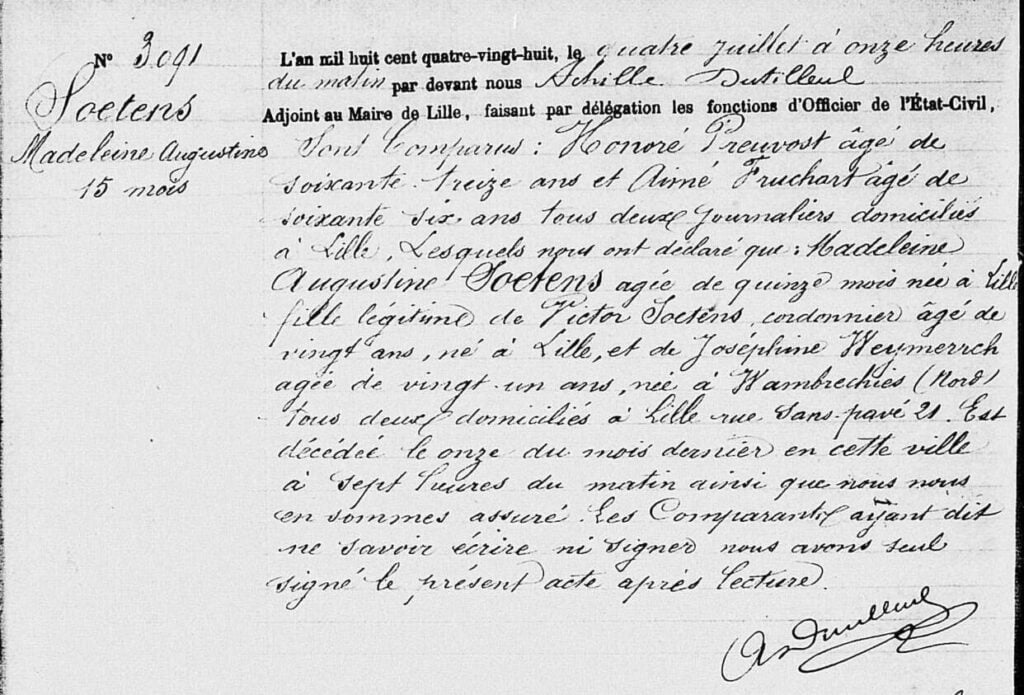 N° 3091
Soetens
Madeleine Augustine
15 mois
L'an mil huit cent quatre-vingt-huit, le quatre juillet à onze heures
du matin par devant nous Achille Dutilleul
Adjoint au Maire de Lille, faisant par délégation les fonctions d'Officier de l'État-Civil,
Sont Comparus : Honoré Preuvost âgé de
soixante-treize ans et Aimé Fruchart âgé de
soixante six ans tous deux journaliers domiciliés
à Lille, Lesquels nous ont déclaré que : Madeleine
Augustine Soetens agée de quinze mois née à Lille
fille légitime de Victor Soetens, cordonnier âgé de
vingt ans, né à Lille, et de Joséphine Weymerrch
agée de vingt un ans, née à Wambrechies (Nord)
tous deux domiciliés à Lille rue Sans-pavé 21. Est
décédée le onze du mois dernier en cette ville
à sept heures du matin ainsi que nous nous
en sommes assuré. Les Comparants ayant dit
ne savoir écrire ni signer nous avons seul
signé le présent acte après lecture.
A Dutilleul